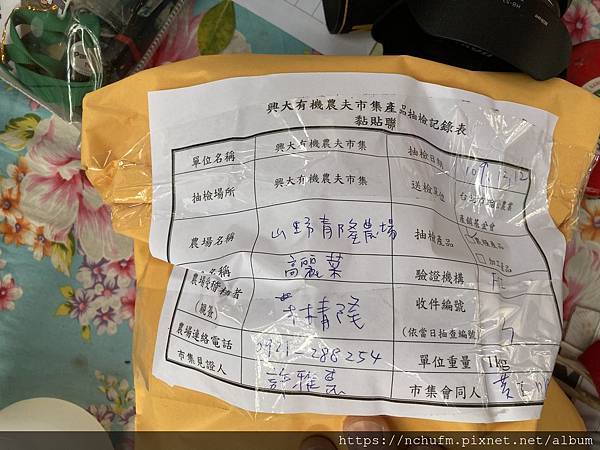 興大有機農夫市集產品抽檢記錄表
黏貼聯
單位名稱 興大有機農夫市集 抽檢日期 109.12.12
抽檢場所 興大有機農夫市集 送檢單位
產銷基金會
農場名稱 山野青隆農場 抽檢產品
名稱 高麗菜 驗證機構
農場受稽知者
(親簽)
收件編號
(依當日抽查編號)
農場連絡電話 0921-288254 單位重量 1kg
市集見證人 市集會同人
https://nchufm.pixnet.net/album